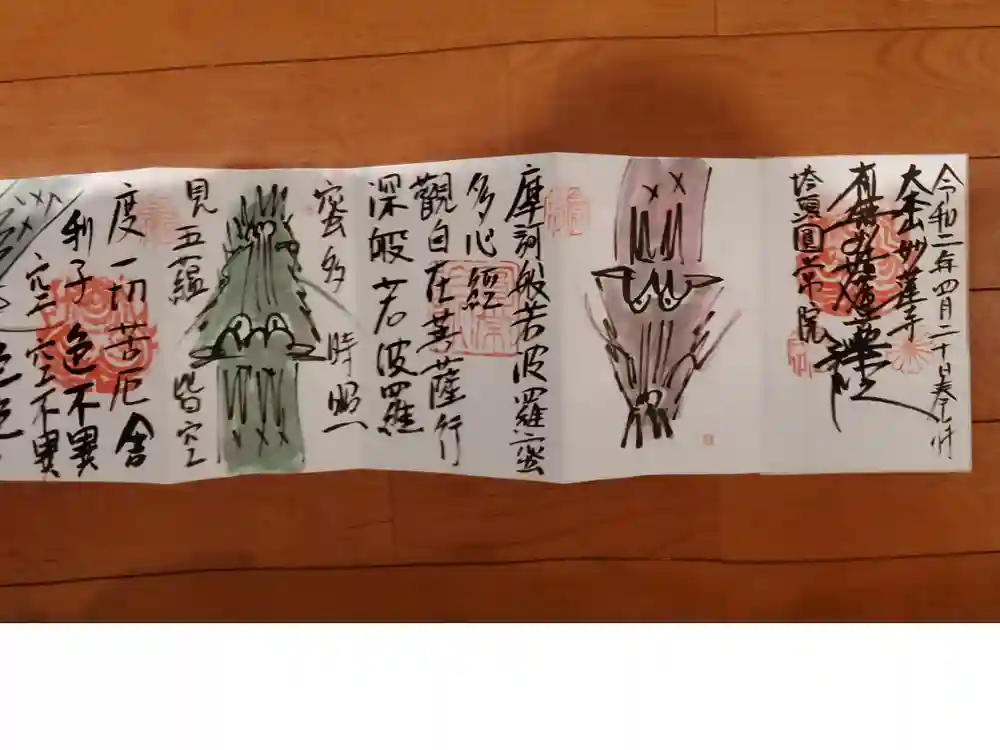 令和二年四月二十日奉拝
大本山妙蓮寺
南無妙法蓮華経
塔頭圓常院
摩訶般若波羅蜜
多心經
觀自在菩薩行
深般若波羅
蜜多 時照
見五蘊 皆空
度一切苦厄舍
利子色不異
空空不異
色色